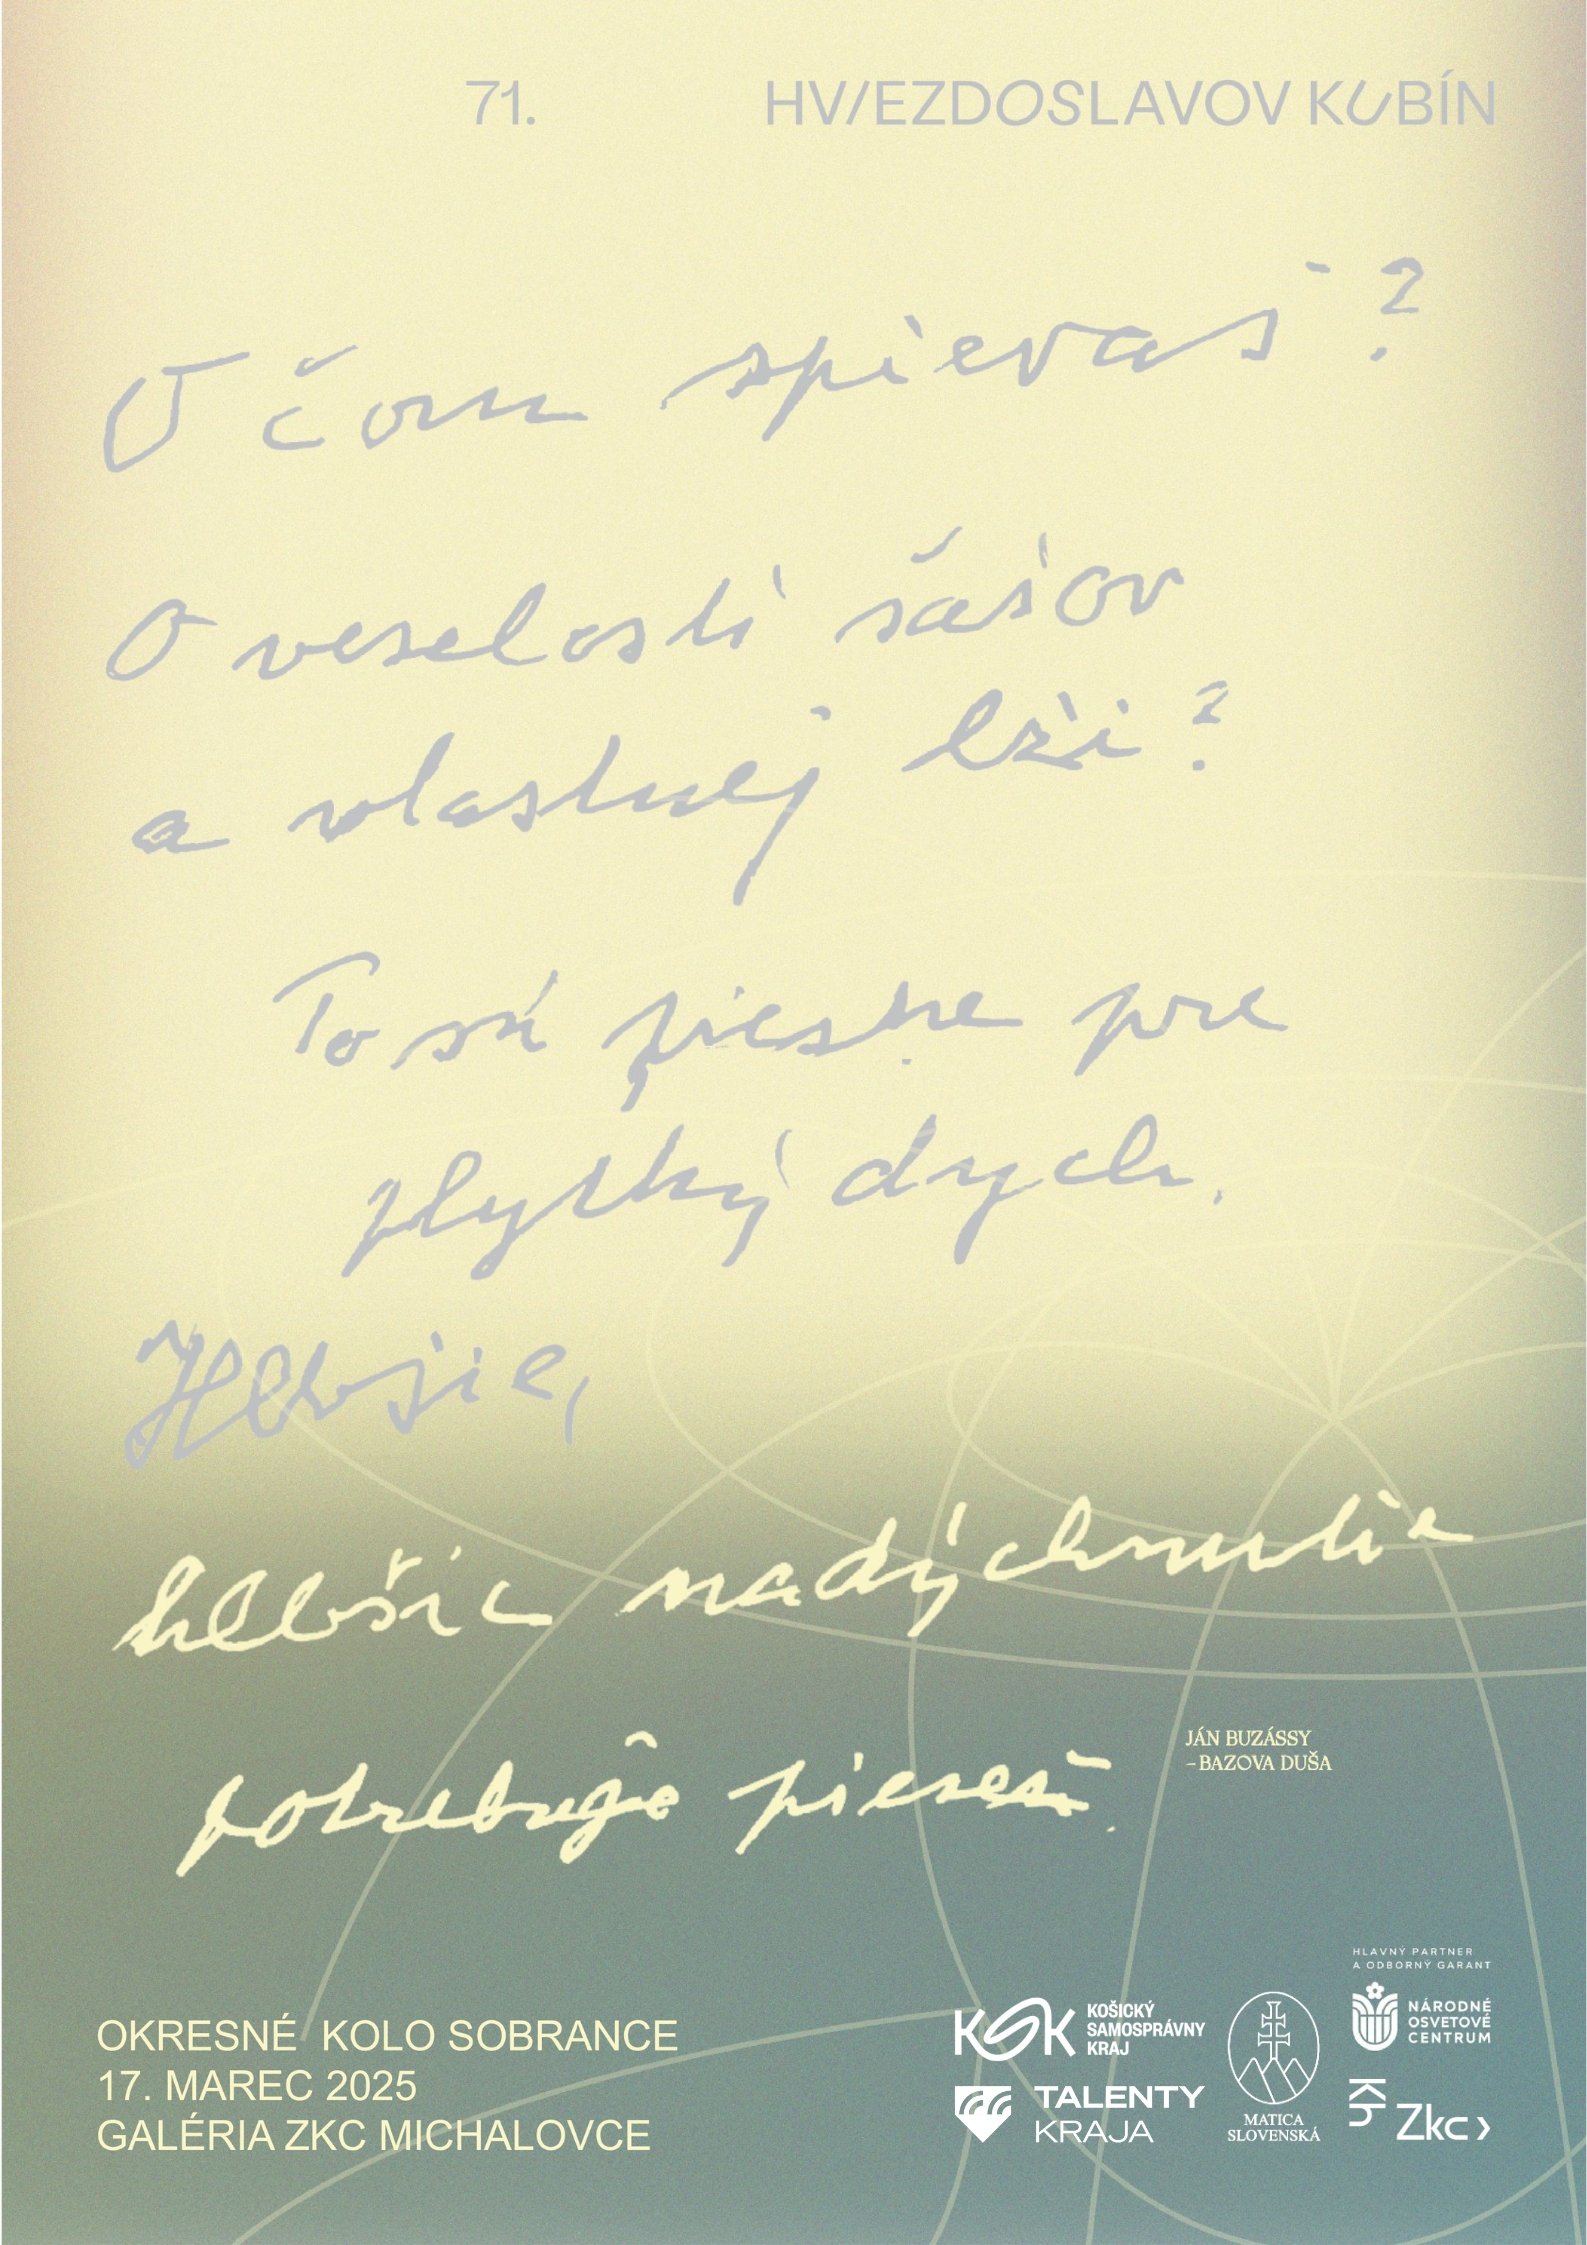 71. HVIEZDOSLAVOV KUBÍN
O čom spievaš?
O veselosti šašov
a vlastnej lži?
To sú piesne pre
plytký dych.
Hlbšie,
hlbšie nadýchnutie
potrebuje pieseň.
JÁN BUZÁSSY
– BAZOVA DUŠA
HLAVNÝ PARTNER
A ODBORNÝ GARANT
OKRESNÉ KOLO SOBRANCE
17. MAREC 2025
GALÉRIA ZKC MICHALOVCE
KSK KOŠICKÝ
SAMOSPRÁVNY
KRAJ
TALENTY
KRAJA
MATICA
SLOVENSKÁ
NÁRODNÉ
OSVETOVÉ
CENTRUM
HK
Zkc ›